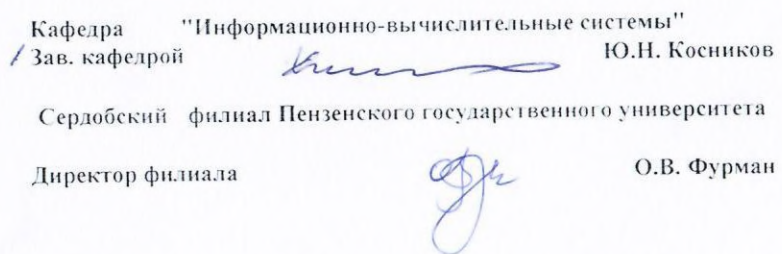 Кафедра "Информационно-вычислительные системы"
Зав. кафедрой Ю.Н. Косников
Сердобский филиал Пензенского государственного университета
Директор филиала О.В. Фурман